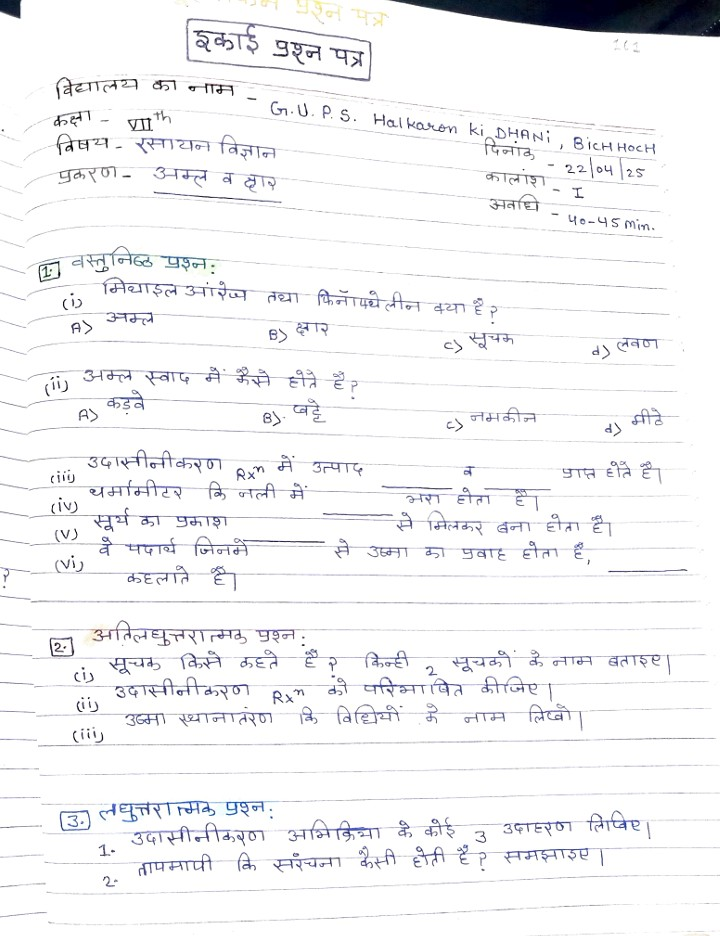 प्रश्न पत्र
इकाई प्रश्न पत्र
161
विद्यालय का नाम - G.U.P.S. Halkaron Ki DHANi, BiCHHOCH
कक्षा - VII th
दिनांक - 22/04/25
विषय - रसायन विज्ञान
कालांश - I
प्रकरण - अम्ल व क्षार
अवधि - 40-45 min.
1. वस्तुनिष्ठ प्रश्न:
(i) मिथाइल आंरेज्ज तथा फिनॉफ्थेलीन क्या है?
A) अम्ल B) क्षार c) सूचक d) लवण
(ii) अम्ल स्वाद में कैसे होते है?
A) कड़वे B). खट्टे c) नमकीन d) मीठे
(iii) उदासीनीकरण Rxⁿ में उत्पाद ______ व ______ प्राप्त होते है।
(iv) थर्मामीटर कि नली में ______ भरा होता है।
(v) सूर्य का प्रकाश ______ से मिलकर बना होता है।
(vi) वे पदार्थ जिनमें ______ से उष्मा का प्रवाह होता है, ______
कहलाते है।
?
2. अतिलघुत्तरात्मक प्रश्न:
(i) सूचक किसे कहते है? किन्ही 2 सूचकों के नाम बताइए।
(ii) उदासीनीकरण Rxⁿ को परिभाषित कीजिए।
(iii) उष्मा स्थानातंरण कि विधियों के नाम लिखो।
3. लघुत्तरात्मक प्रश्न:
1. उदासीनीकरण अभिक्रिया के कोई 3 उदाहरण लिखिए।
2. तापमापी कि सरंचना कैसी होती है? समझाइए।